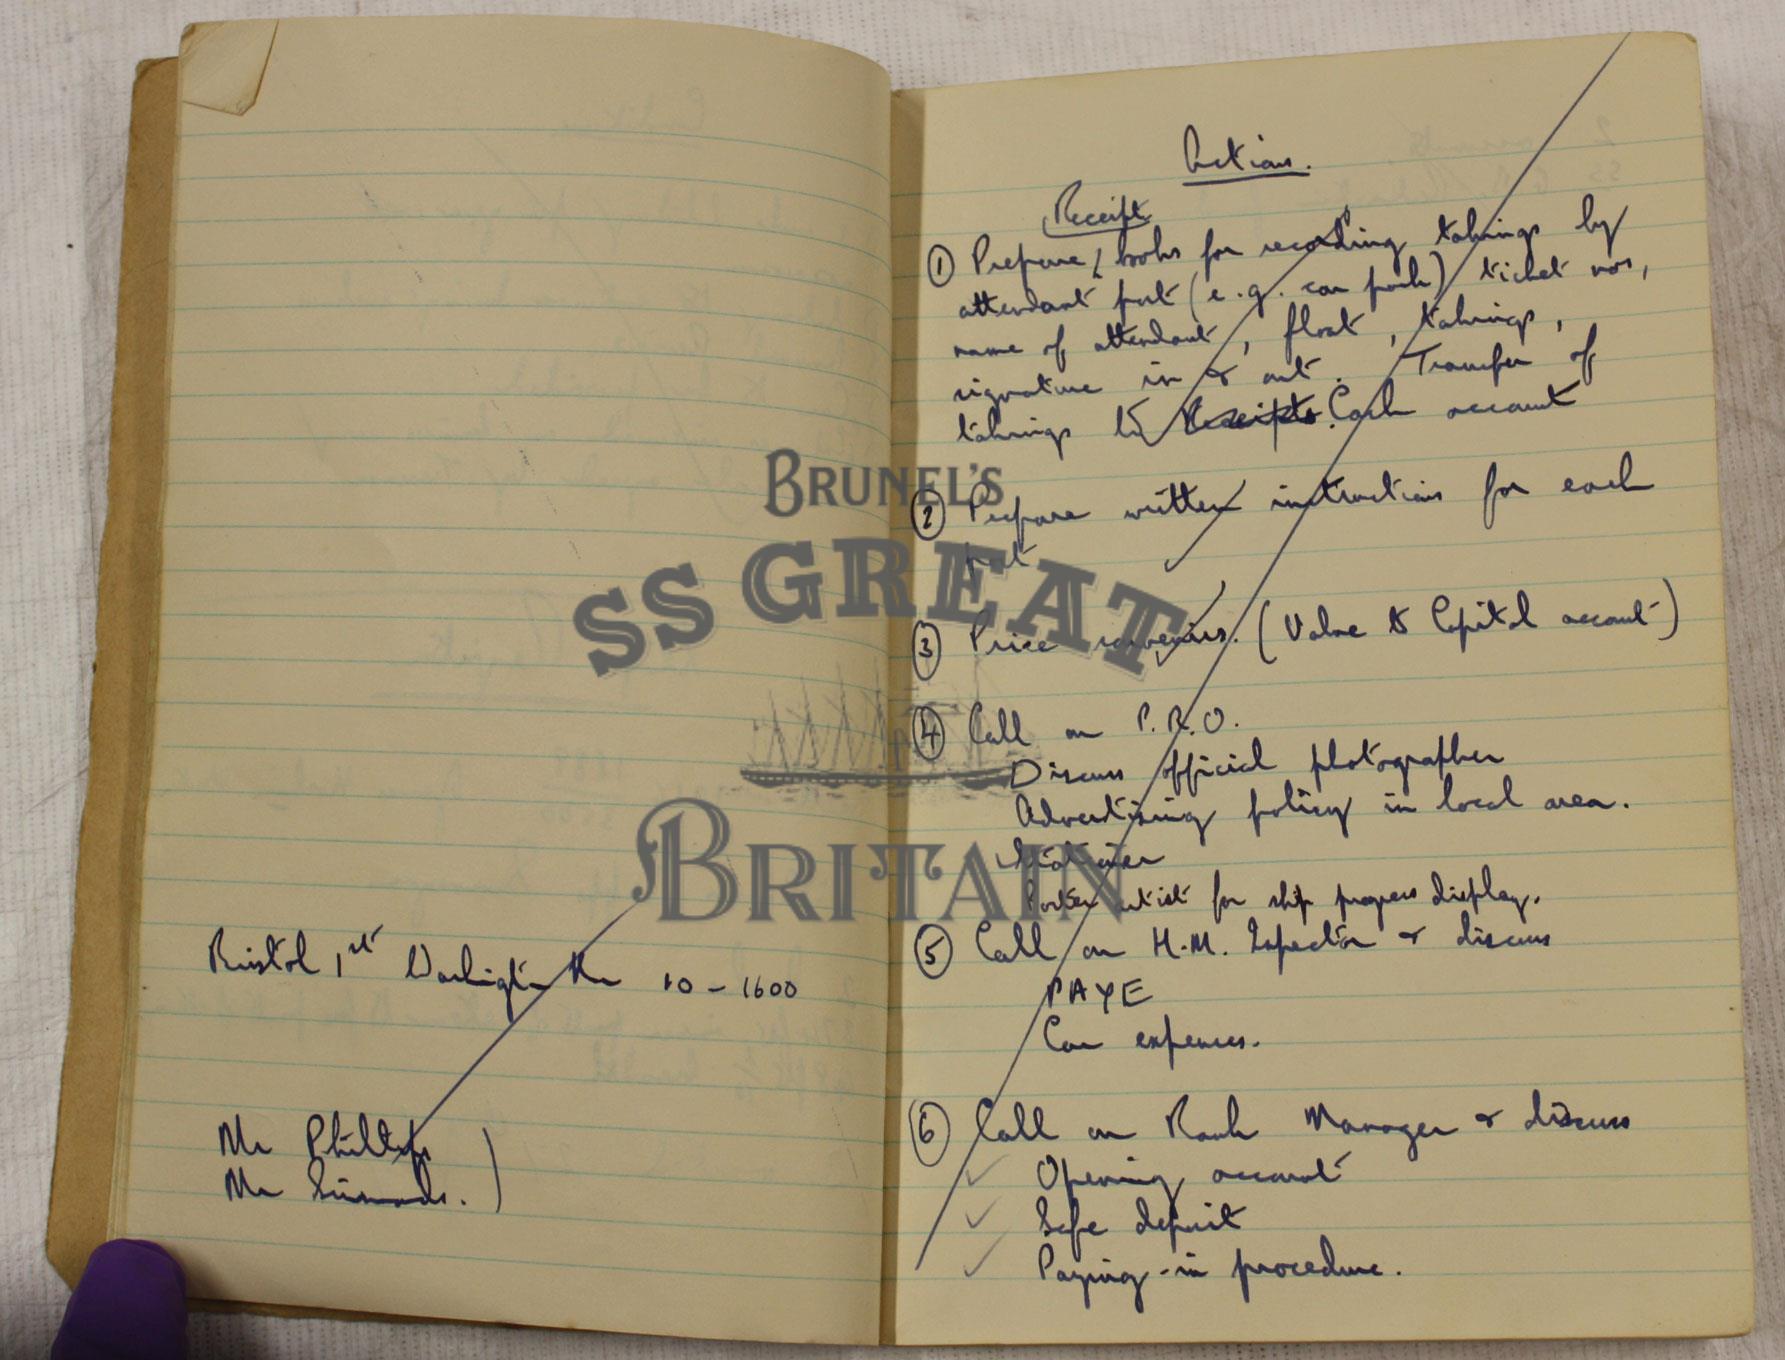 Bristol, 1st Darlington Rm 10 - 1600
Mr Phillips
Mr Simmonds.
Actions.
Receipt
① Prepare books for recording takings by
attendant post (e.g. car park) ticket nos,
name of attendant, float, takings,
signature in & out. Transfer of
takings to Receipts Cash account
② Prepare written instructions for each
post
③ Price souvenirs. (Value to Capital account)
④ Call on P.R.O.
Discuss official photographer
Advertising policy in local area.
Poster artist for ship progress display.
⑤ Call on H.M. Inspector & discuss
PAYE
Car expenses.
⑥ Call on Bank Manager & discuss
✓ Opening account
✓ Safe deposit
✓ Paying-in procedure.
BRUNEL'S
SS GREAT
BRITAIN